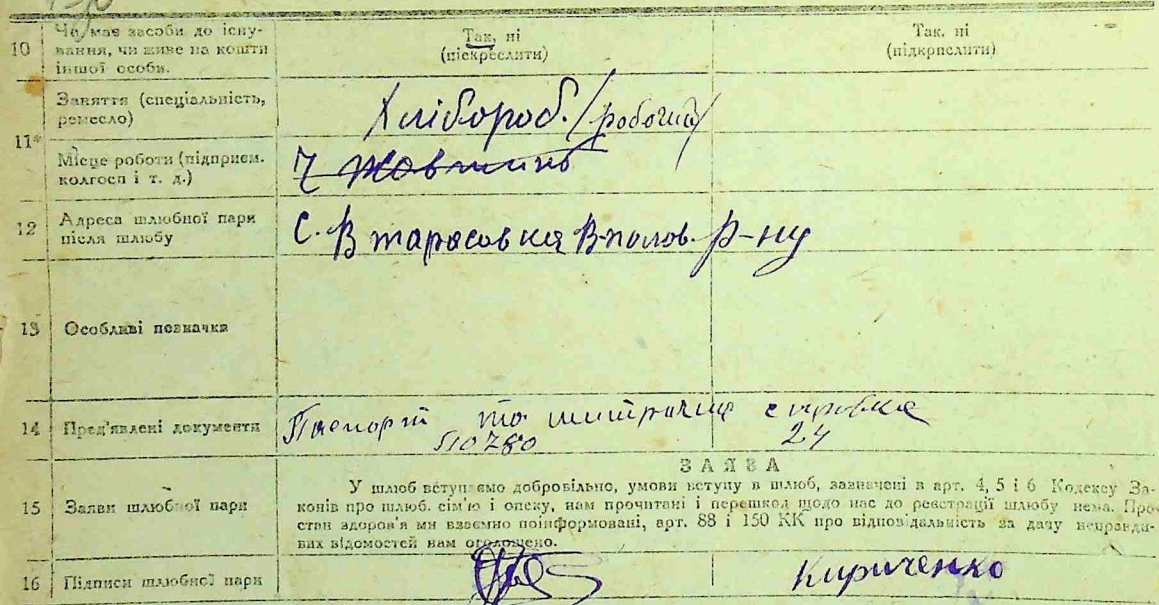 10 Чи має засоби до існу-
вання, чи живе на кошти
іншої особи.
Так, ні
(піскреслити)
Так, ні
(підкрпслити)
11* Заняття (спеціальність,
ремесло)
Хлібороб. /робочий/
Місце роботи (підприєм.
колгосп і т. д.)
12 Адреса шлюбної пари
після шлюбу
С. В тарасовка В-полов. р-ну
13 Особливі позначки
14 Пред'явлені документи
Паспорт та справка
510780 24
15 Заяви шлюбної пари
ЗАЯВА
У шлюб вступаємо добровільно, умови вступу в шлюб, зазначені в арт. 4, 5 і 6 Кодексу За-
конів про шлюб. сім'ю і опеку, нам прочитані і перешкод щодо нас до реєстрації шлюбу нема. Про
стан здоров'я ми взаємно поінформовані, арт. 88 і 150 КК про відповідальність за дачу неправди-
вих відомостей нам оголошено.
16 Підписи шлюбної пари
Кириченко